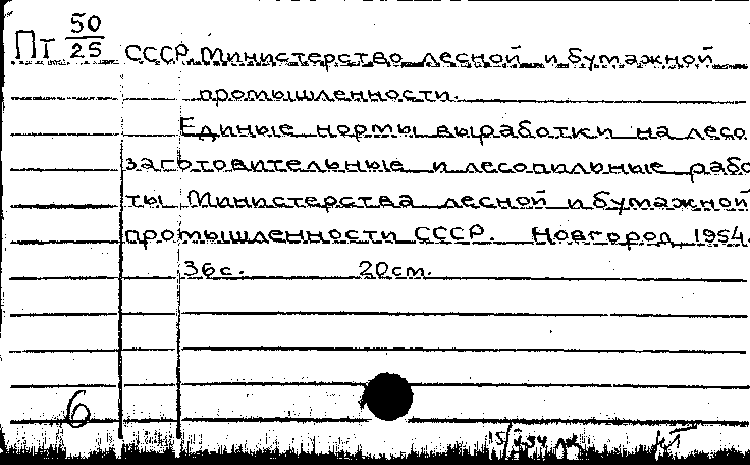 Пт 50/25
СССР. Министерство лесной и бумажной
промышленности.
Единые нормы выработки на лесо
заготовительные и лесопильные рабо
ты Министерства лесной и бумажной
промышленности СССР. Новгород, 1954.
36с. 20см.
6